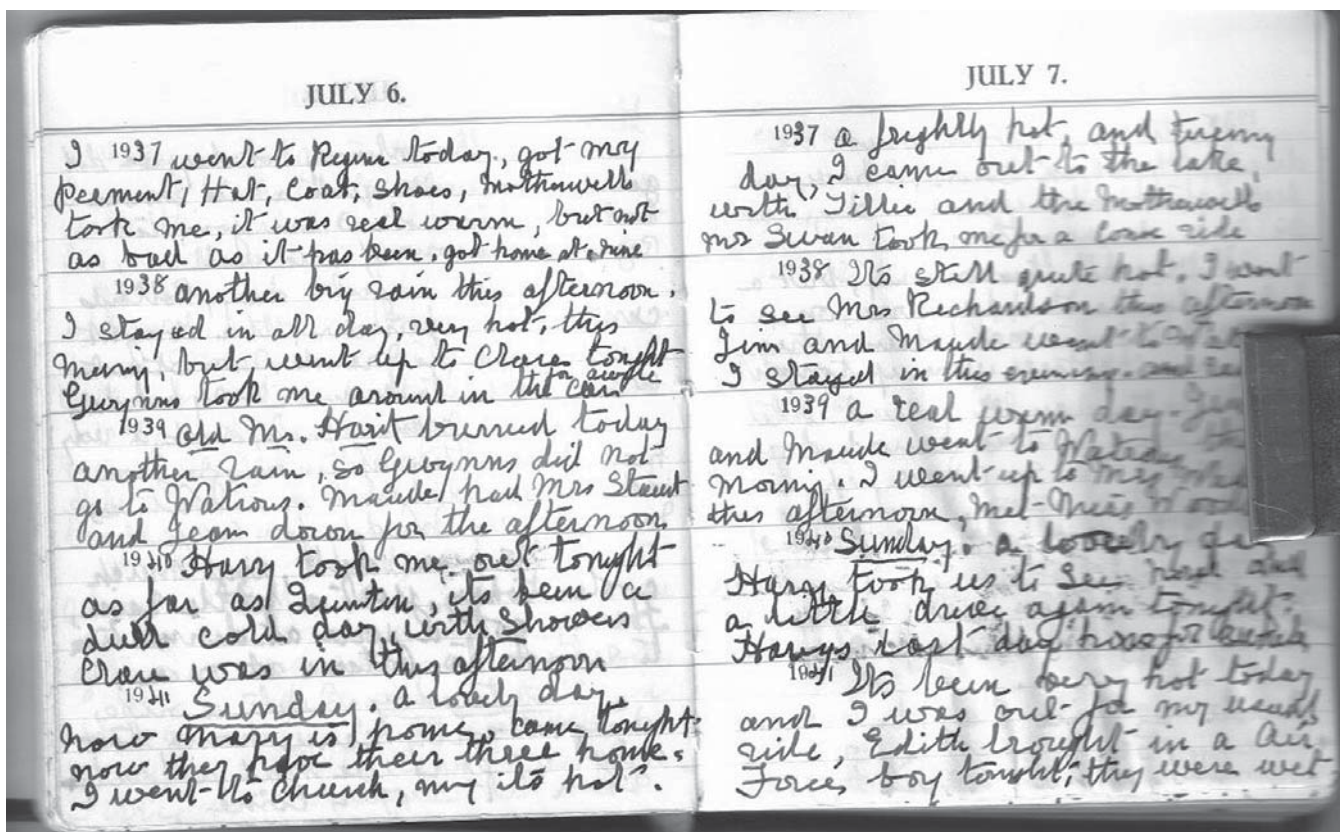 JULY 6.
I 1937 went to Regina today, got my
Peement, Hat, Coat, Shoes, Motherwells
took me, it was real warm, but not
as bad as it has been, got home at nine
1938 another big rain this afternoon.
I stayed in all day, very hot, this
morning, but went up to Clares tonight
for awhile
Gwynns took me around in the car
1939 Old Mr. Hart burried today
another rain, so Gwynns did not
go to Watrous. Maude had Mrs Stewart
and Jean down for the afternoon
1940 Harry took me out tonight
as far as Quinton, its been a
dull cold day, with showers
Clare was in this afternoon
1941 Sunday. a lovely day,
now Mary is home, came tonight
now they have their three home.
I went to Church, my its hot.
JULY 7.
1937 a frightly hot, and
day, I came out to the lake,
with Tillie and the Motherwells
Mrs Swan took me for a ride
1938 Its still quite hot. I went
to see Mrs Richardson this afternoon
Jim and Maude went to
I stayed in this evening. and
1939 a real warm day.
and Maude went to Watrous
morning. I went up to Mrs
this afternoon, Met Miss
1940 Sunday. a lovely
Harry took us to See and
a little drive again tonight.
Harrys last day here for awhile
1941 Its been very hot today
and I was out for my usual,
ride, Edith brought in a Air
Force boy tonight, they were wet